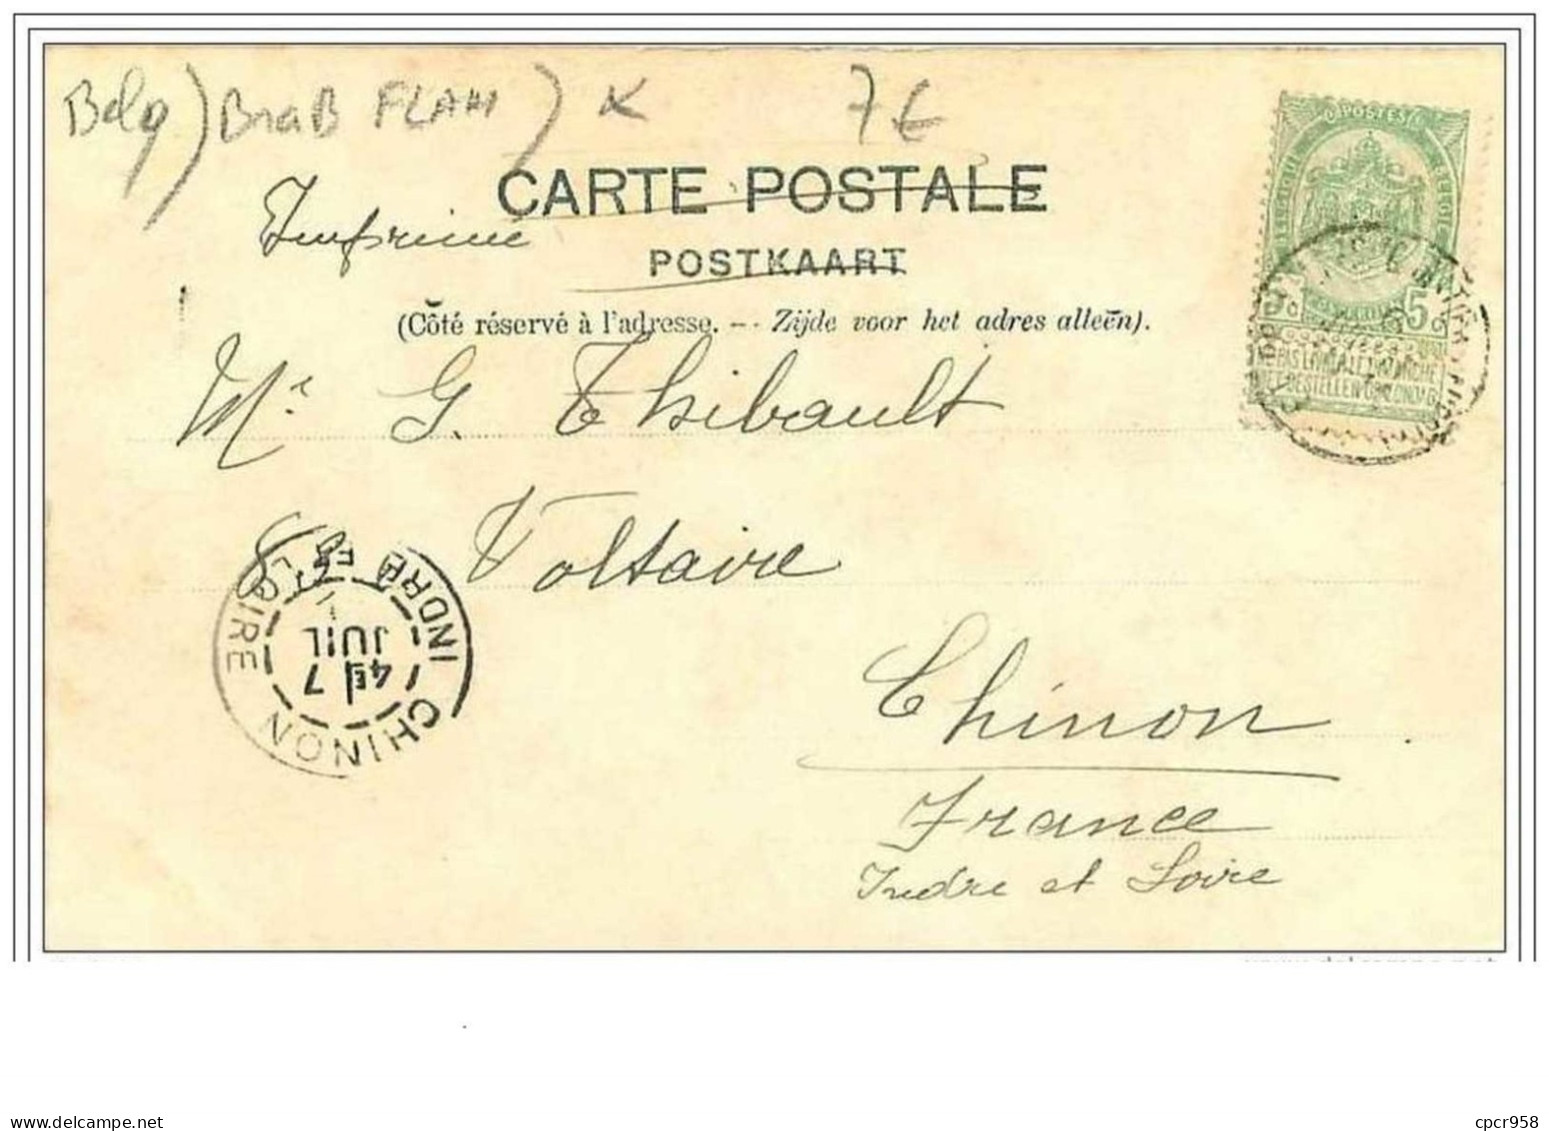 Belg) BraB FLAM) K 7€
CARTE POSTALE
Imprimé
POSTKAART
(Côté réservé à l'adresse. — Zijde voor het adres alleen).
Mr. G. Thibault
Voltaire
Chinon
France
Indre et Loire
POSTES
BELGIË
5c 5c
CHINON
INDRE ET LOIRE
4E 7
JUIL
delcampe.net
Belgique
cpcr958